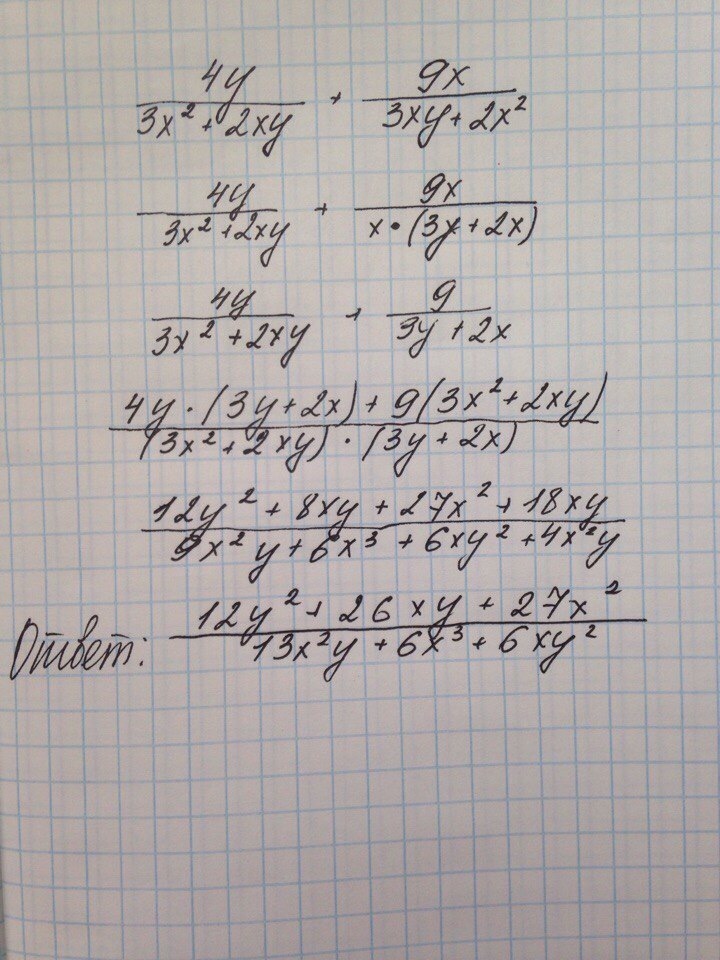 4y/(3x² + 2xy) + 9x/(3xy + 2x²)
4y/(3x² + 2xy) + 9x/(x · (3y + 2x))
4y/(3x² + 2xy) + 9/(3y + 2x)
(4y · (3y + 2x) + 9(3x² + 2xy))/((3x² + 2xy) · (3y + 2x))
(12y² + 8xy + 27x² + 18xy)/(9x²y + 6x³ + 6xy² + 4x²y)
Ответ: (12y² + 26xy + 27x²)/(13x²y + 6x³ + 6xy²)